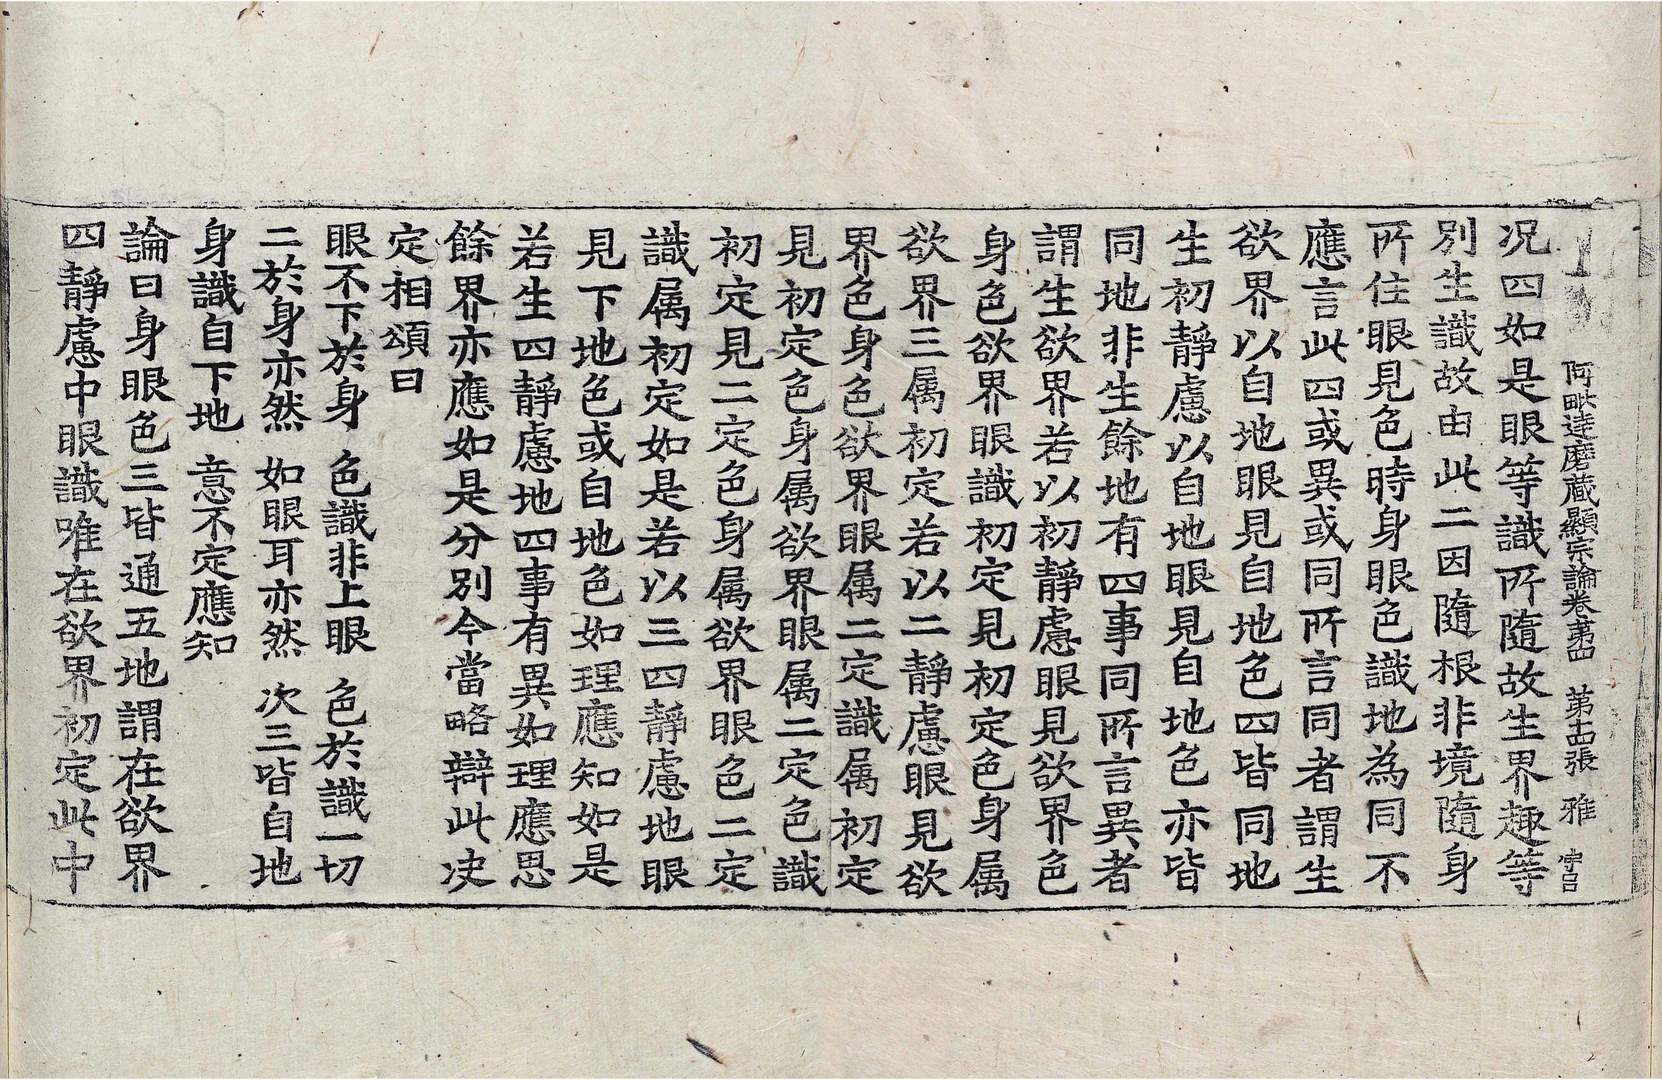 阿毗達磨藏顯宗論卷苐四 第十四張 雅
况四如是眼等識所隨故生界趣等
別生識故由此二因隨根非境隨身
所住眼見色時身眼色識地為同不
應言此四或異或同所言同者謂生
欲界以自地眼見自地色四皆同地
生初靜慮以自地眼見自地色亦皆
同地非生餘地有四事同所言異者
謂生欲界若以初靜慮眼見欲界色
身色欲界眼識初定見初定色身属
欲界三属初定若以二靜慮眼見欲
界色身色欲界眼属二定識属初定
見初定色身属欲界眼属二定色識
初定見二定色身属欲界眼色二定
識属初定如是若以三四靜慮地眼
見下地色或自地色如理應知如是
若生四靜慮地四事有異如理應思
餘界亦應如是分別今當略辯此决
定相頌曰
眼不下於身 色識非上眼 色於識一切
二於身亦然 如眼耳亦然 次三皆自地
身識自下地 意不定應知
論曰身眼色三皆通五地謂在欲界
四靜慮中眼識唯在欲界初定此中